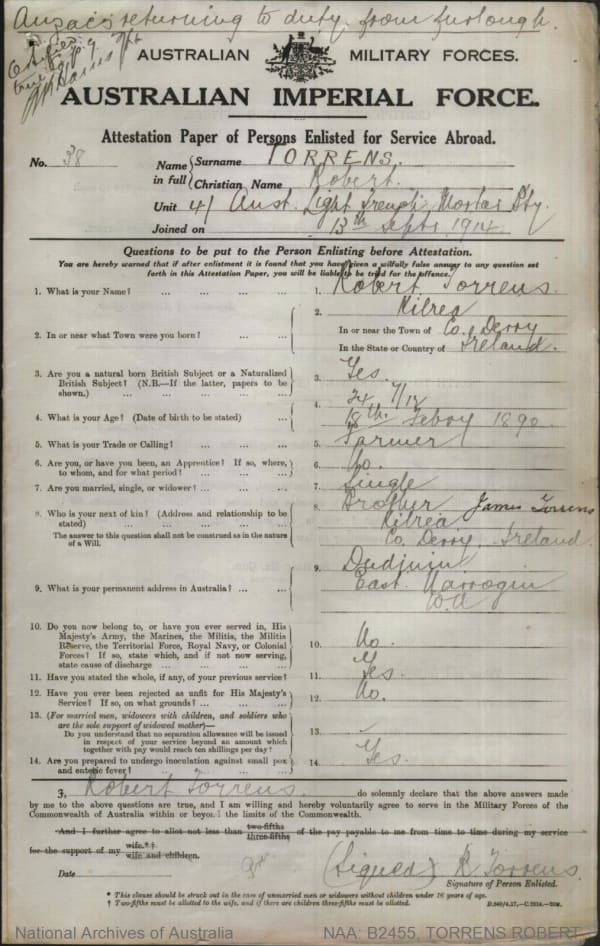 Anzacs returning to duty from furlough.
AUSTRALIAN MILITARY FORCES.
AUSTRALIAN IMPERIAL FORCE.
Attestation Paper of Persons Enlisted for Service Abroad.
No. 38
Name in full { Surname TORRENS.
Christian Name Robert.
Unit 4 Aust. Light Trench Mortar Bty.
Joined on 13th Sept, 1914.
Questions to be put to the Person Enlisting before Attestation.
You are hereby warned that if after enlistment it is found that you have given a wilfully false answer to any question set
forth in this Attestation Paper, you will be liable to be tried for the offence.
1. What is your Name? ... ... ... ... 1. Robert Torrens.
2. In or near what Town were you born? ... ... 2. Kilrea
In or near the Town of Co. Derry
In the State or Country of Ireland.
3. Are you a natural born British Subject or a Naturalized
British Subject? (N.B.—If the latter, papers to be
shown.) ... ... ... ... ... 3. Yes.
4. What is your Age? (Date of birth to be stated) ... 4. 24 7/12
18th. Feby 1890.
5. What is your Trade or Calling? ... ... ... 5. Farmer
6. Are you, or have you been, an Apprentice? If so, where,
to whom, and for what period? ... ... ... 6. No.
7. Are you married, single, or widower? ... ... ... 7. Single
8. Who is your next of kin? (Address and relationship to be
stated) ... ... ... ... ... 8. Brother James Torrens
Kilrea
Co. Derry, Ireland
The answer to this question shall not be construed as in the nature
of a Will.
9. What is your permanent address in Australia? ... ... 9. Dudjinin
East Narrogin
W.A
10. Do you now belong to, or have you ever served in, His
Majesty's Army, the Marines, the Militia, the Militia
Reserve, the Territorial Force, Royal Navy, or Colonial
Forces? If so, state which, and if not now serving,
state cause of discharge ... ... ... ... 10. No.
11. Have you stated the whole, if any, of your previous service? 11. Yes.
12. Have you ever been rejected as unfit for His Majesty's
Service? If so, on what grounds? ... ... ... 12. No.
13. (For married men, widowers with children, and soldiers who
are the sole support of widowed mother)—
Do you understand that no separation allowance will be issued
in respect of your service beyond an amount which
together with pay would reach ten shillings per day? 13.
14. Are you prepared to undergo inoculation against small pox
and enteric fever? ... ... ... ... 14. Yes.
I, Robert Torrens. do solemnly declare that the above answers made
by me to the above questions are true, and I am willing and hereby voluntarily agree to serve in the Military Forces of the
Commonwealth of Australia within or beyond the limits of the Commonwealth.
And I further agree to allot not less than two-fifths three-fifths of the pay payable to me from time to time during my service
for the support of my wife.*† wife and children.
Date
(Signed) R Torrens.
Signature of Person Enlisted.
* This clause should be struck out in the case of unmarried men or widowers without children under 16 years of age.
† Two-fifths must be allotted to the wife, and if there are children three-fifths must be allotted.
National Archives of Australia NAA: B2455, TORRENS ROBERT